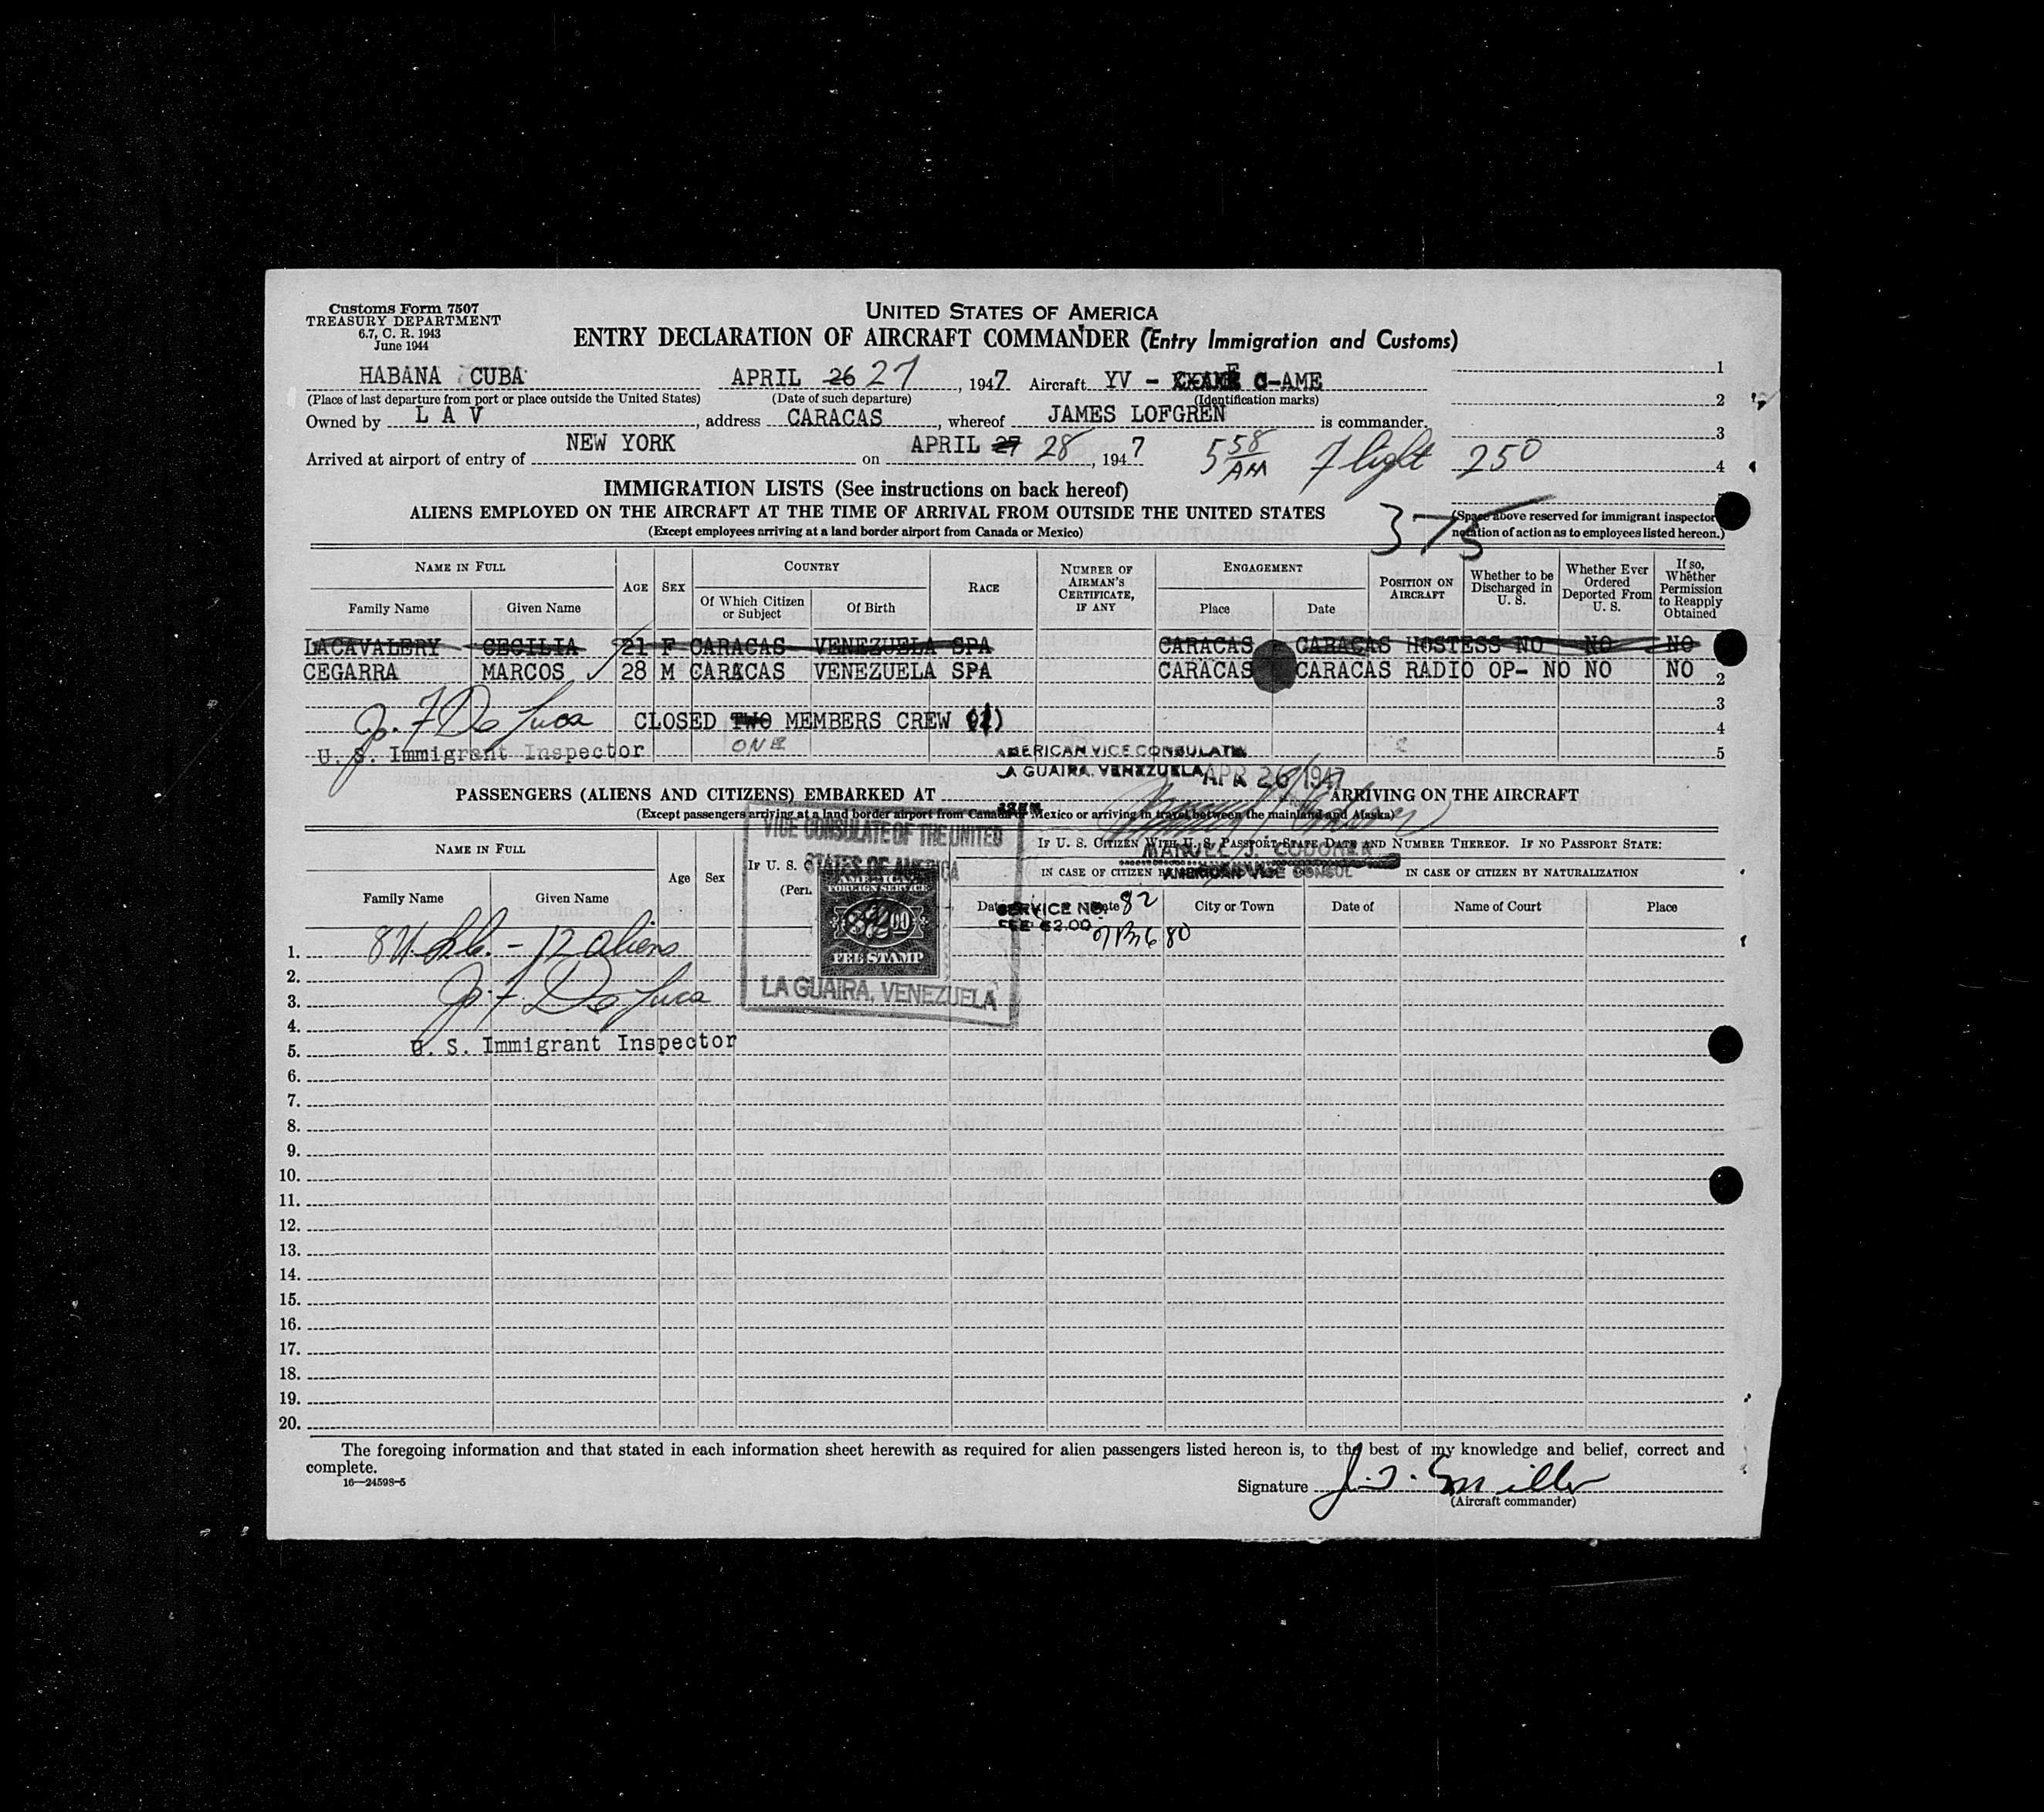 Customs Form 7507
TREASURY DEPARTMENT
6.7, C. R. 1943
June 1944
UNITED STATES OF AMERICA
ENTRY DECLARATION OF AIRCRAFT COMMANDER (Entry Immigration and Customs)
HABANA CUBA APRIL 26 27, 1947 Aircraft YV - C-AME 1
(Place of last departure from port or place outside the United States) (Date of such departure) (Identification marks) 2
Owned by L A V, address CARACAS, whereof JAMES LOFGREN is commander. 3
Arrived at airport of entry of NEW YORK on APRIL 27 28, 1947 5 58 AM Flight 250 4
IMMIGRATION LISTS (See instructions on back hereof)
ALIENS EMPLOYED ON THE AIRCRAFT AT THE TIME OF ARRIVAL FROM OUTSIDE THE UNITED STATES
(Except employees arriving at a land border airport from Canada or Mexico)
375
(Space above reserved for immigrant inspector
notation of action as to employees listed hereon.)
NAME IN FULL AGE SEX COUNTRY RACE NUMBER OF AIRMAN'S CERTIFICATE, IF ANY ENGAGEMENT POSITION ON AIRCRAFT Whether to be Discharged in U. S. Whether Ever Ordered Deported From U. S. If so, Whether Permission to Reapply Obtained
Family Name Given Name Of Which Citizen or Subject Of Birth Place Date
LACAVALERY CECILIA 21 F CARACAS VENEZUELA SPA CARACAS CARACAS HOSTESS NO NO NO
CEGARRA MARCOS 28 M CARACAS VENEZUELA SPA CARACAS CARACAS RADIO OP- NO NO NO 2
3
J. F. De Luca CLOSED TWO MEMBERS CREW (1) 4
ONE
U. S. Immigrant Inspector 5
AMERICAN VICE CONSULATE
LA GUAIRA, VENEZUELA APR 26 1947
PASSENGERS (ALIENS AND CITIZENS) EMBARKED AT ARRIVING ON THE AIRCRAFT
(Except passengers arriving at a land border airport from Canada or Mexico or arriving in travel between the mainland and Alaska)
VICE CONSULATE OF THE UNITED
STATES OF AMERICA
NAME IN FULL Age Sex IF U. S. C IF U. S. CITIZEN WITH U. S. PASSPORT STATE DATE AND NUMBER THEREOF. IF NO PASSPORT STATE:
MANUEL J. CODONER
IN CASE OF CITIZEN B IN CASE OF CITIZEN BY NATURALIZATION
AMERICAN VICE CONSUL
Family Name Given Name City or Town Date of Name of Court Place
AMERICAN
FOREIGN SERVICE
$2.00
FEE STAMP
LA GUAIRA, VENEZUELA
SERVICE NO. 82
FEE $2.00
1. 12 aliens
2.
3. J. F. De Luca
4.
5. U. S. Immigrant Inspector
6.
7.
8.
9.
10.
11.
12.
13.
14.
15.
16.
17.
18.
19.
20.
The foregoing information and that stated in each information sheet herewith as required for alien passengers listed hereon is, to the best of my knowledge and belief, correct and
complete.
16—24598-5
Signature J. T. Smiller
(Aircraft commander)